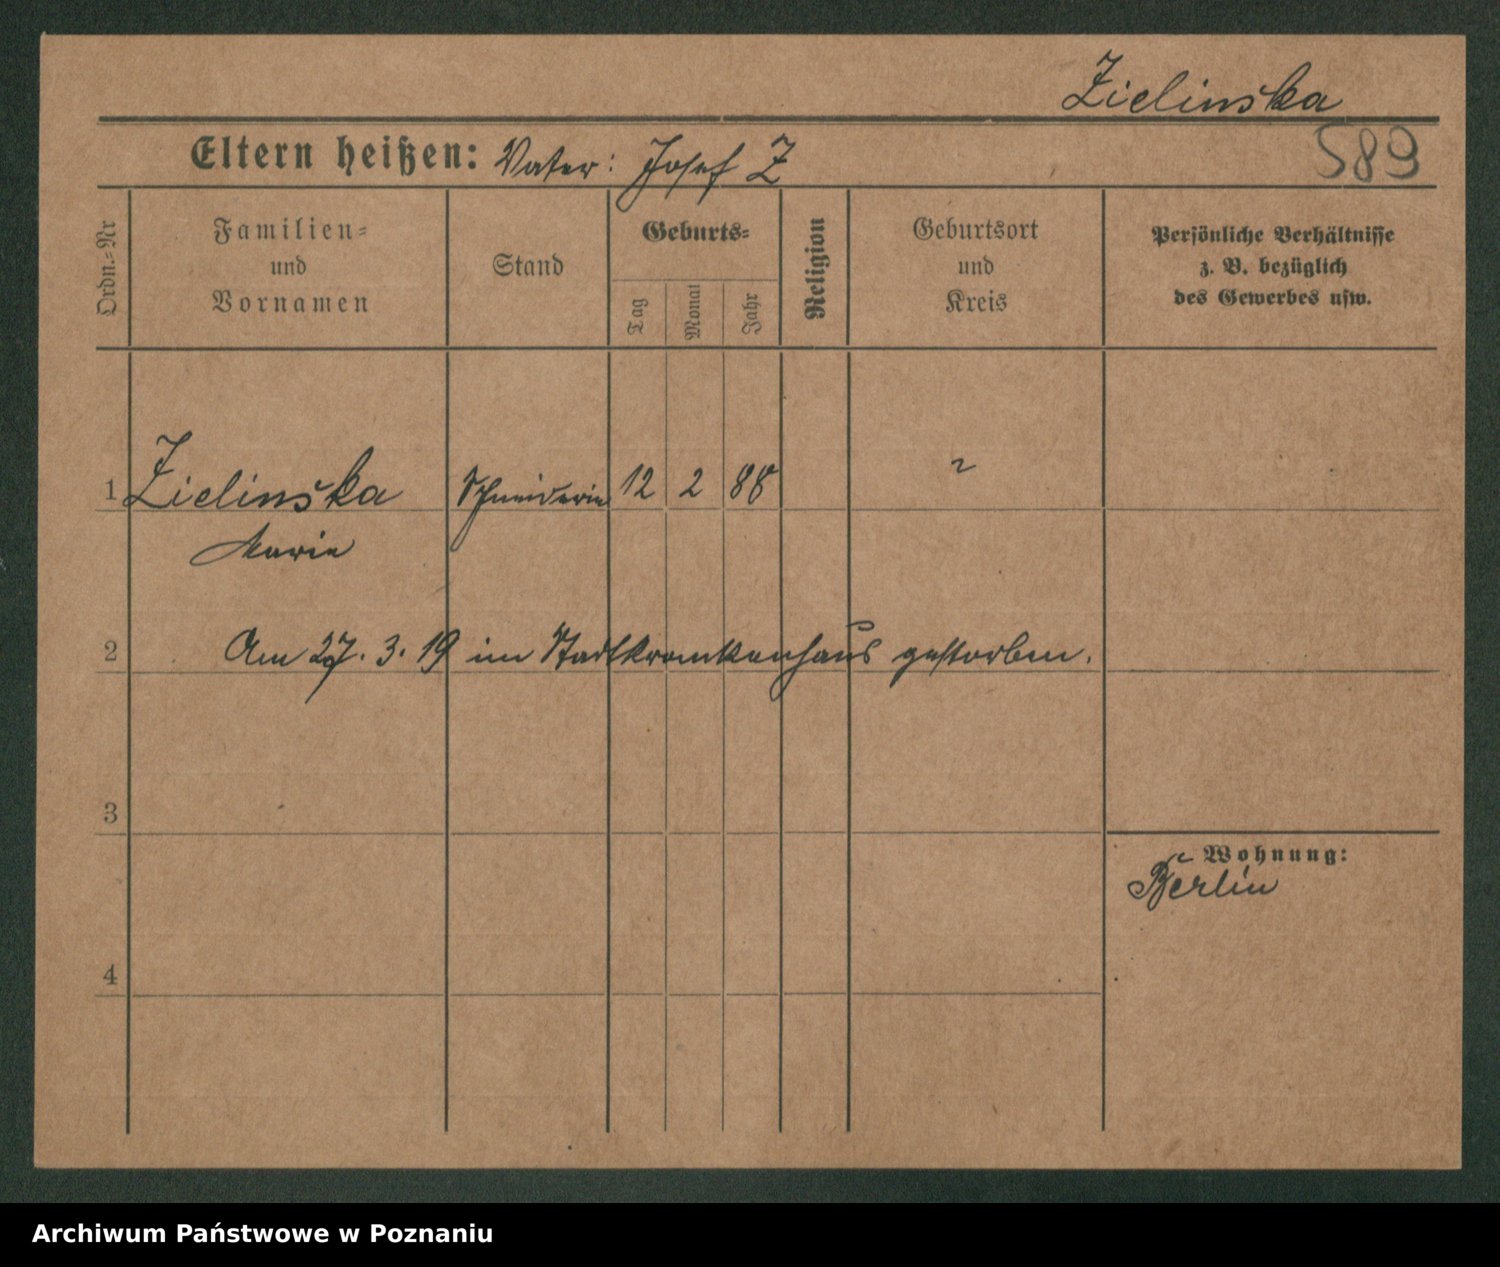 Zielinska
Eltern heißen: Vater: Josef Z
589
Ordn.-Nr
Familien-
und
Vornamen
Stand
Geburts-
Tag
Monat
Jahr
Religion
Geburtsort
und
Kreis
Persönliche Verhältnisse
z. B. bezüglich
des Gewerbes usw.
1 Zielinska Schneiderin 12 2 88 ?
Marie
2 Am 27. 3. 19 im Stadtkrankenhaus gestorben.
3
Wohnung:
Berlin
4
Archiwum Państwowe w Poznaniu